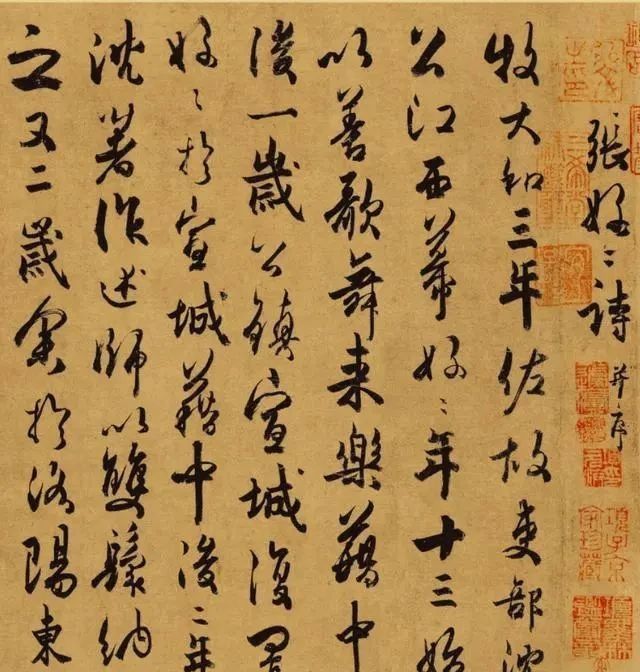 張好〻詩并序
牧大和三年佐故吏部沈
公江西幕好〻年十三始
以善歌舞来樂籍中
後一歳公鎮宣城復置
好〻於宣城籍中後二年
沈著作述師以雙鬟納
之又二歳余於洛陽東
項子京
家珍藏